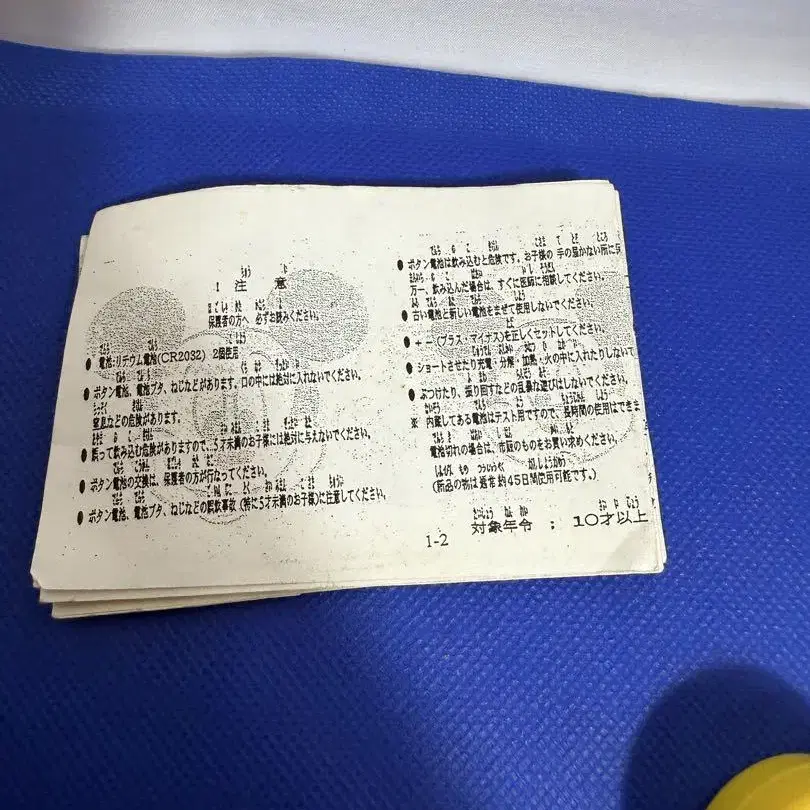 ! 注 意
保護者の方へ 必ずお読みください。
● 電池:リテウム電池(CR2032) 2個使用
● ボタン電池、電池ブタ、ねじなどがあります。口の中には絶対に入れないでください。
窒息などの危険があります。
● 誤って飲み込む危険がありますので、5才未満のお子様には絶対に与えないでください。
● ボタン電池の交換は、保護者の方が行なってください。
● ボタン電池、電池ブタ、ねじなどの誤飲事故(特に5才未満のお子様)に注意してください。
● ボタン電池は飲み込むと危険です。お子様の 手の届かない所に
万一、飲み込んだ場合は、すぐに医師に相談してください。
● 古い電池と新しい電池をまぜて使用しないでください。
● +-(プラス・マイナス)を正しくセットしてください。
● ショートさせたり充電・分解・加熱・火の中に入れたりしないで
● ぶつけたり、振り回すなどの乱暴な遊びはしないでください。
※ 内蔵してある電池はテスト用ですので、長時間の使用はできま
電池切れの場合は、市販のものをお買い求めください。
(新品の物は通常 約45日間使用可能です。)
対象年令 : 10才以上
1-2